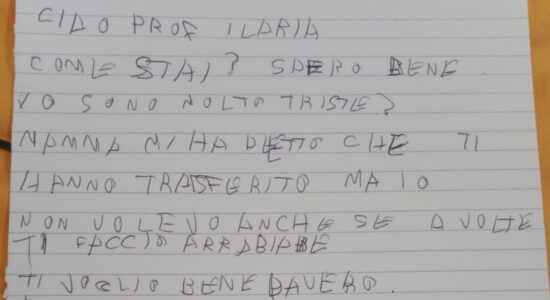 CIAO PROF ILARIA
COME STAI? SPERO BENE
IO SONO MOLTO TRISTE?
MAMMA MI HA DETTO CHE TI
HANNO TRASFERITO MA IO
NON VOLEVO ANCHE SE A VOLTE
TI FACCIO ARRABIARE
TI VOGLIO BENE DAVERO.